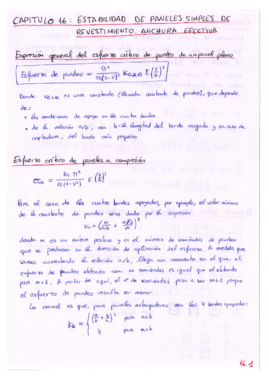 CAPITULO 16: ESTABILIDAD DE PANELES SIMPLES DE
REVESTIMIENTO. ANCHURA EFECTIVA
Expresión general del esfuerzo crítico de pandeo de un panel plano
Esfuerzo de pandeo = π² / 12(1-ν²) E (t/b)²
Donde es una constante (llamada constante de pandeo), que depende
de:
• las condiciones de apoyo en los cuatro bordes
• de la relación a/b, con b = la longitud del borde cargado y en caso de
cortadura, del borde más pequeño.
Esfuerzo crítico de paneles a compresión
= Kc π² / 12(1-ν²) E (t/b)²
Para el caso de los cuatro bordes apoyados, por ejemplo, el valor mínimo
de la constante de pandeo viene dado por la expresión
donde m es un entero positivo y es el número de semiondas de pandeo
que se producen en la dirección de aplicación del esfuerzo. A medida que
vamos aumentando la relación a/b, llega un momento en el que el
esfuerzo de pandeo obtenido con m semiondas es igual que el obtenido
para m+1. A partir de aquí, el nº de semiondas pasa a ser m+1 porque
el esfuerzo de pandeo resulta ser menor.
Lo normal es que, para paneles rectangulares con los 4 bordes apoyados:
Kc = { (a/b + b/a)² para a<b
4 para a≥b
16.1